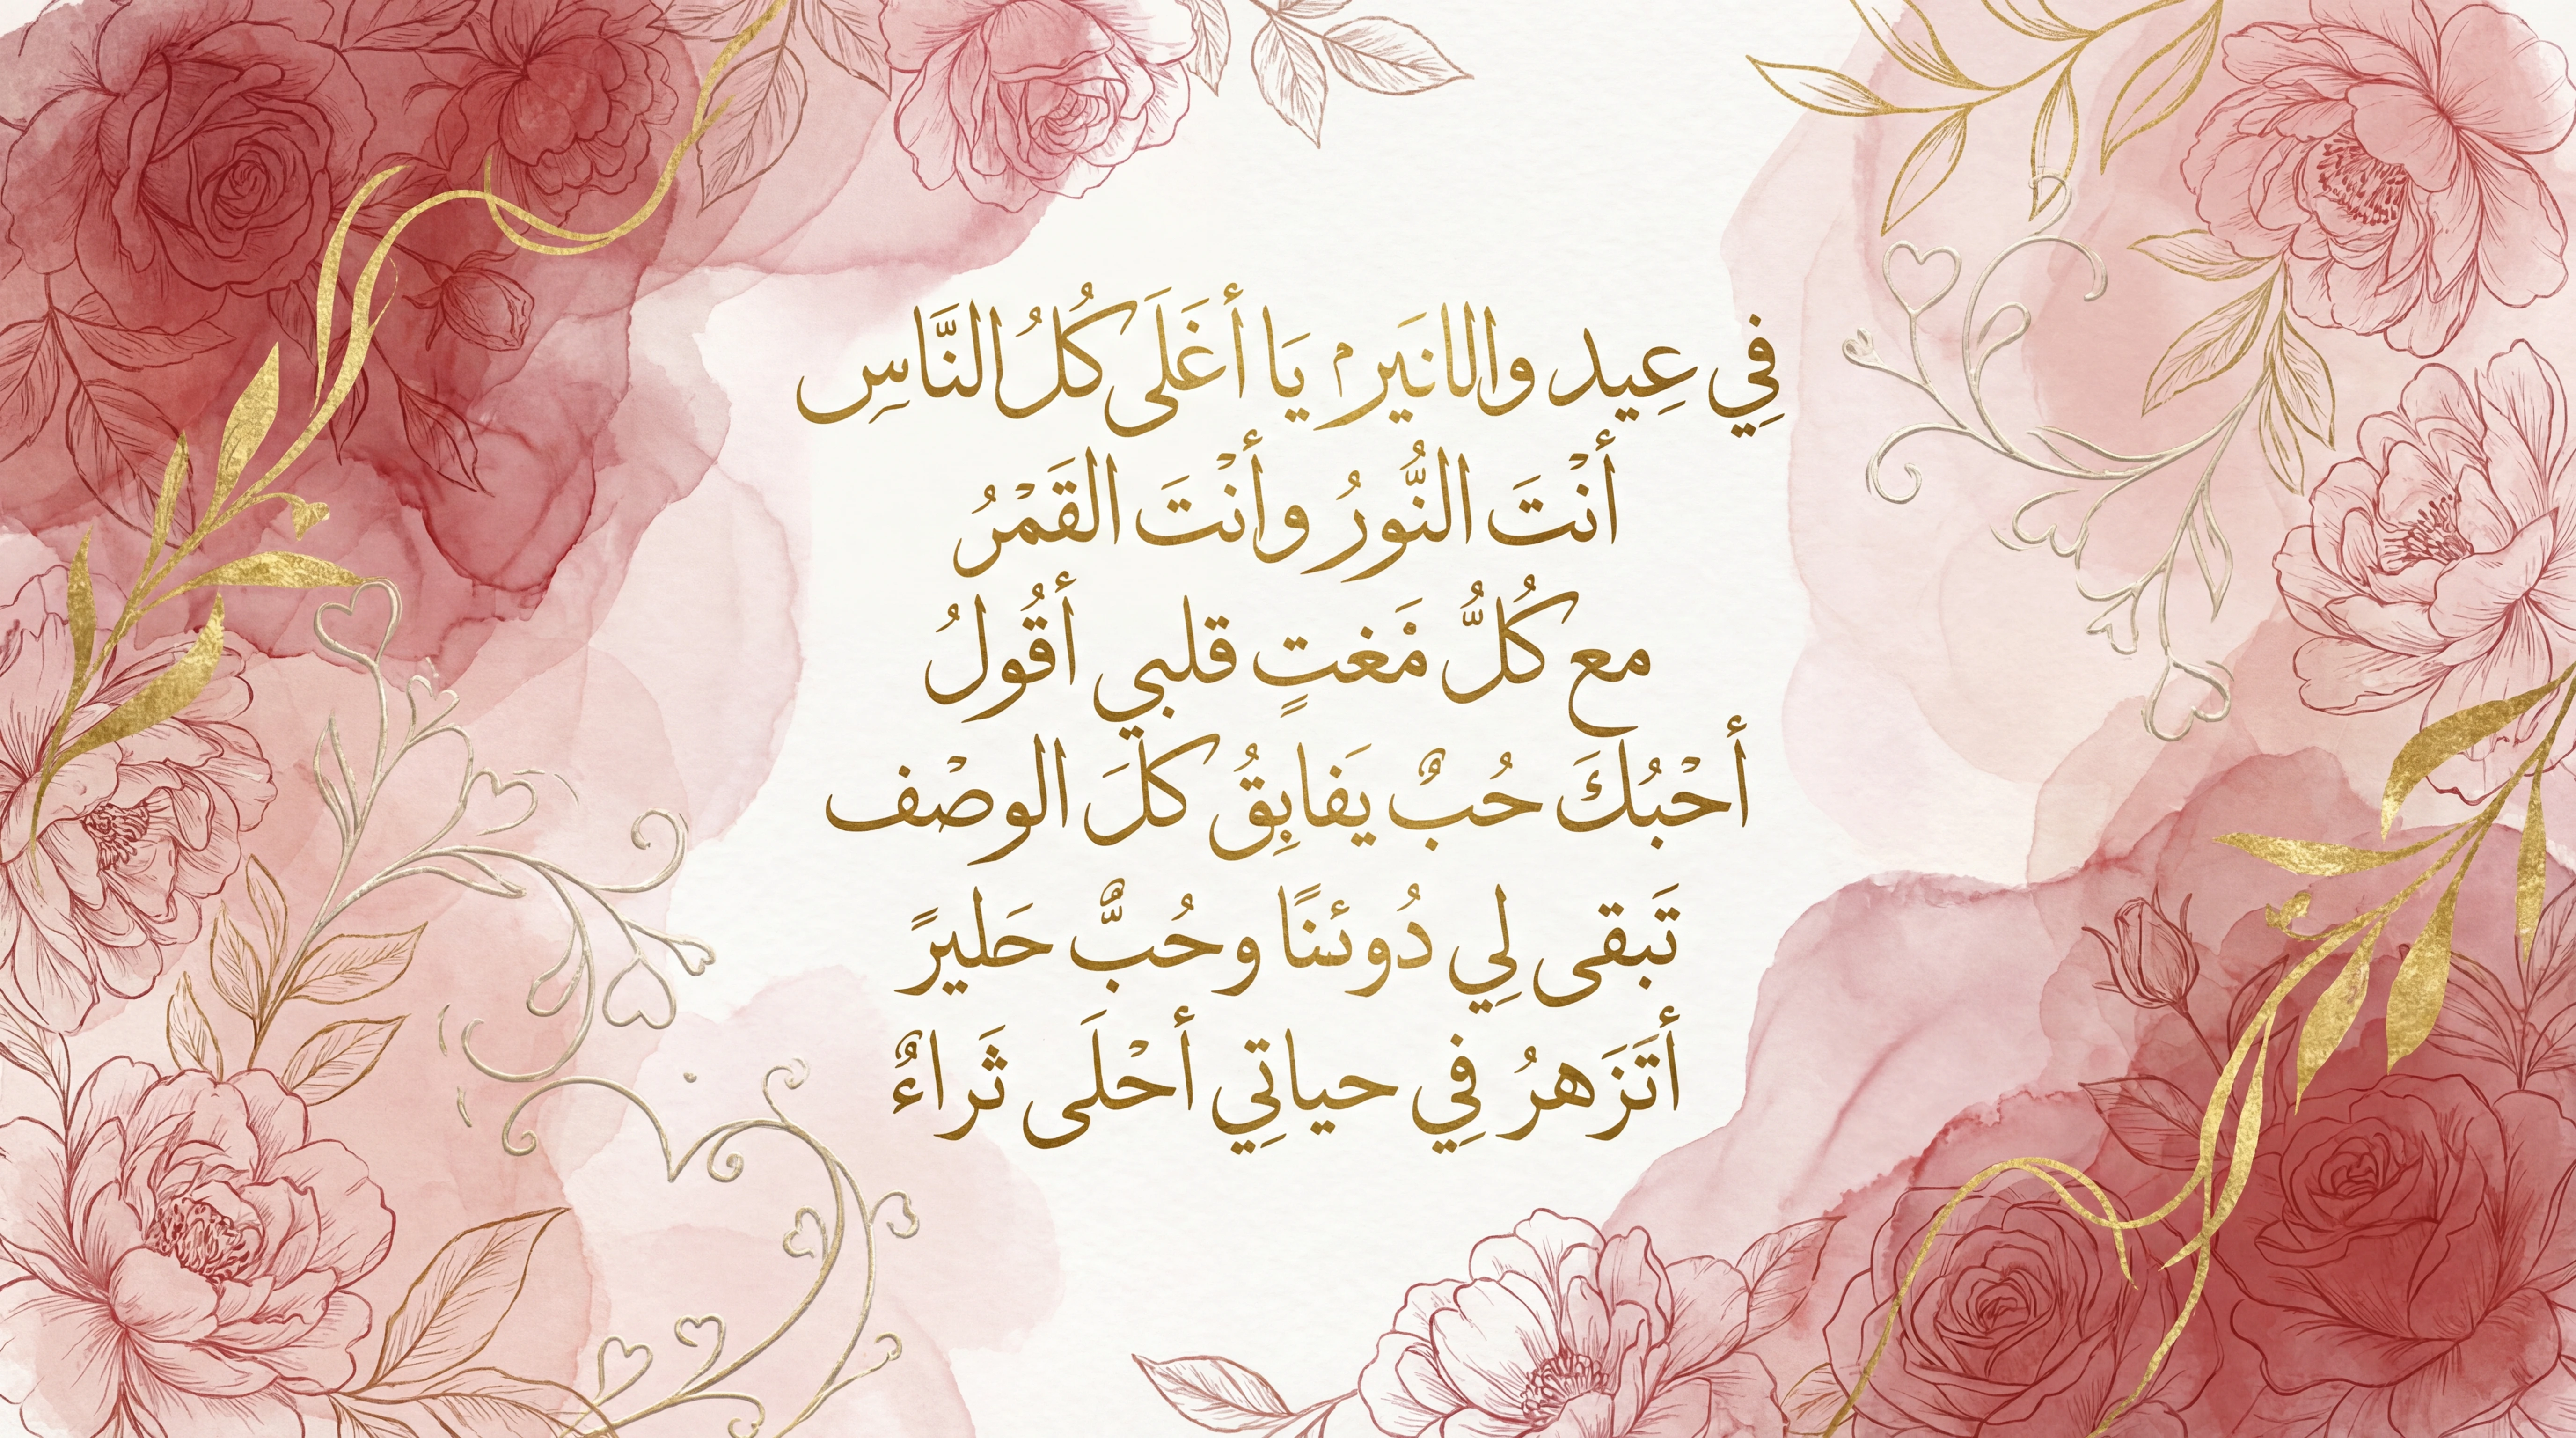 في عِيد والانَير يَا أغَلَى كُلُ النَّاسِ
أنْتَ النُّورُ وأنْتَ القَمْرُ
مع كُلُّ مْغتٍ قلبي أقُولُ
أحْبُكَ حُبٌ يَفابِقُ كلَ الوصْف
تَبقى لِي دُوئنًا وحُبٌّ حَليرً
أتَزَهرُ فِي حياتِي أحْلَى ثَراءٌ